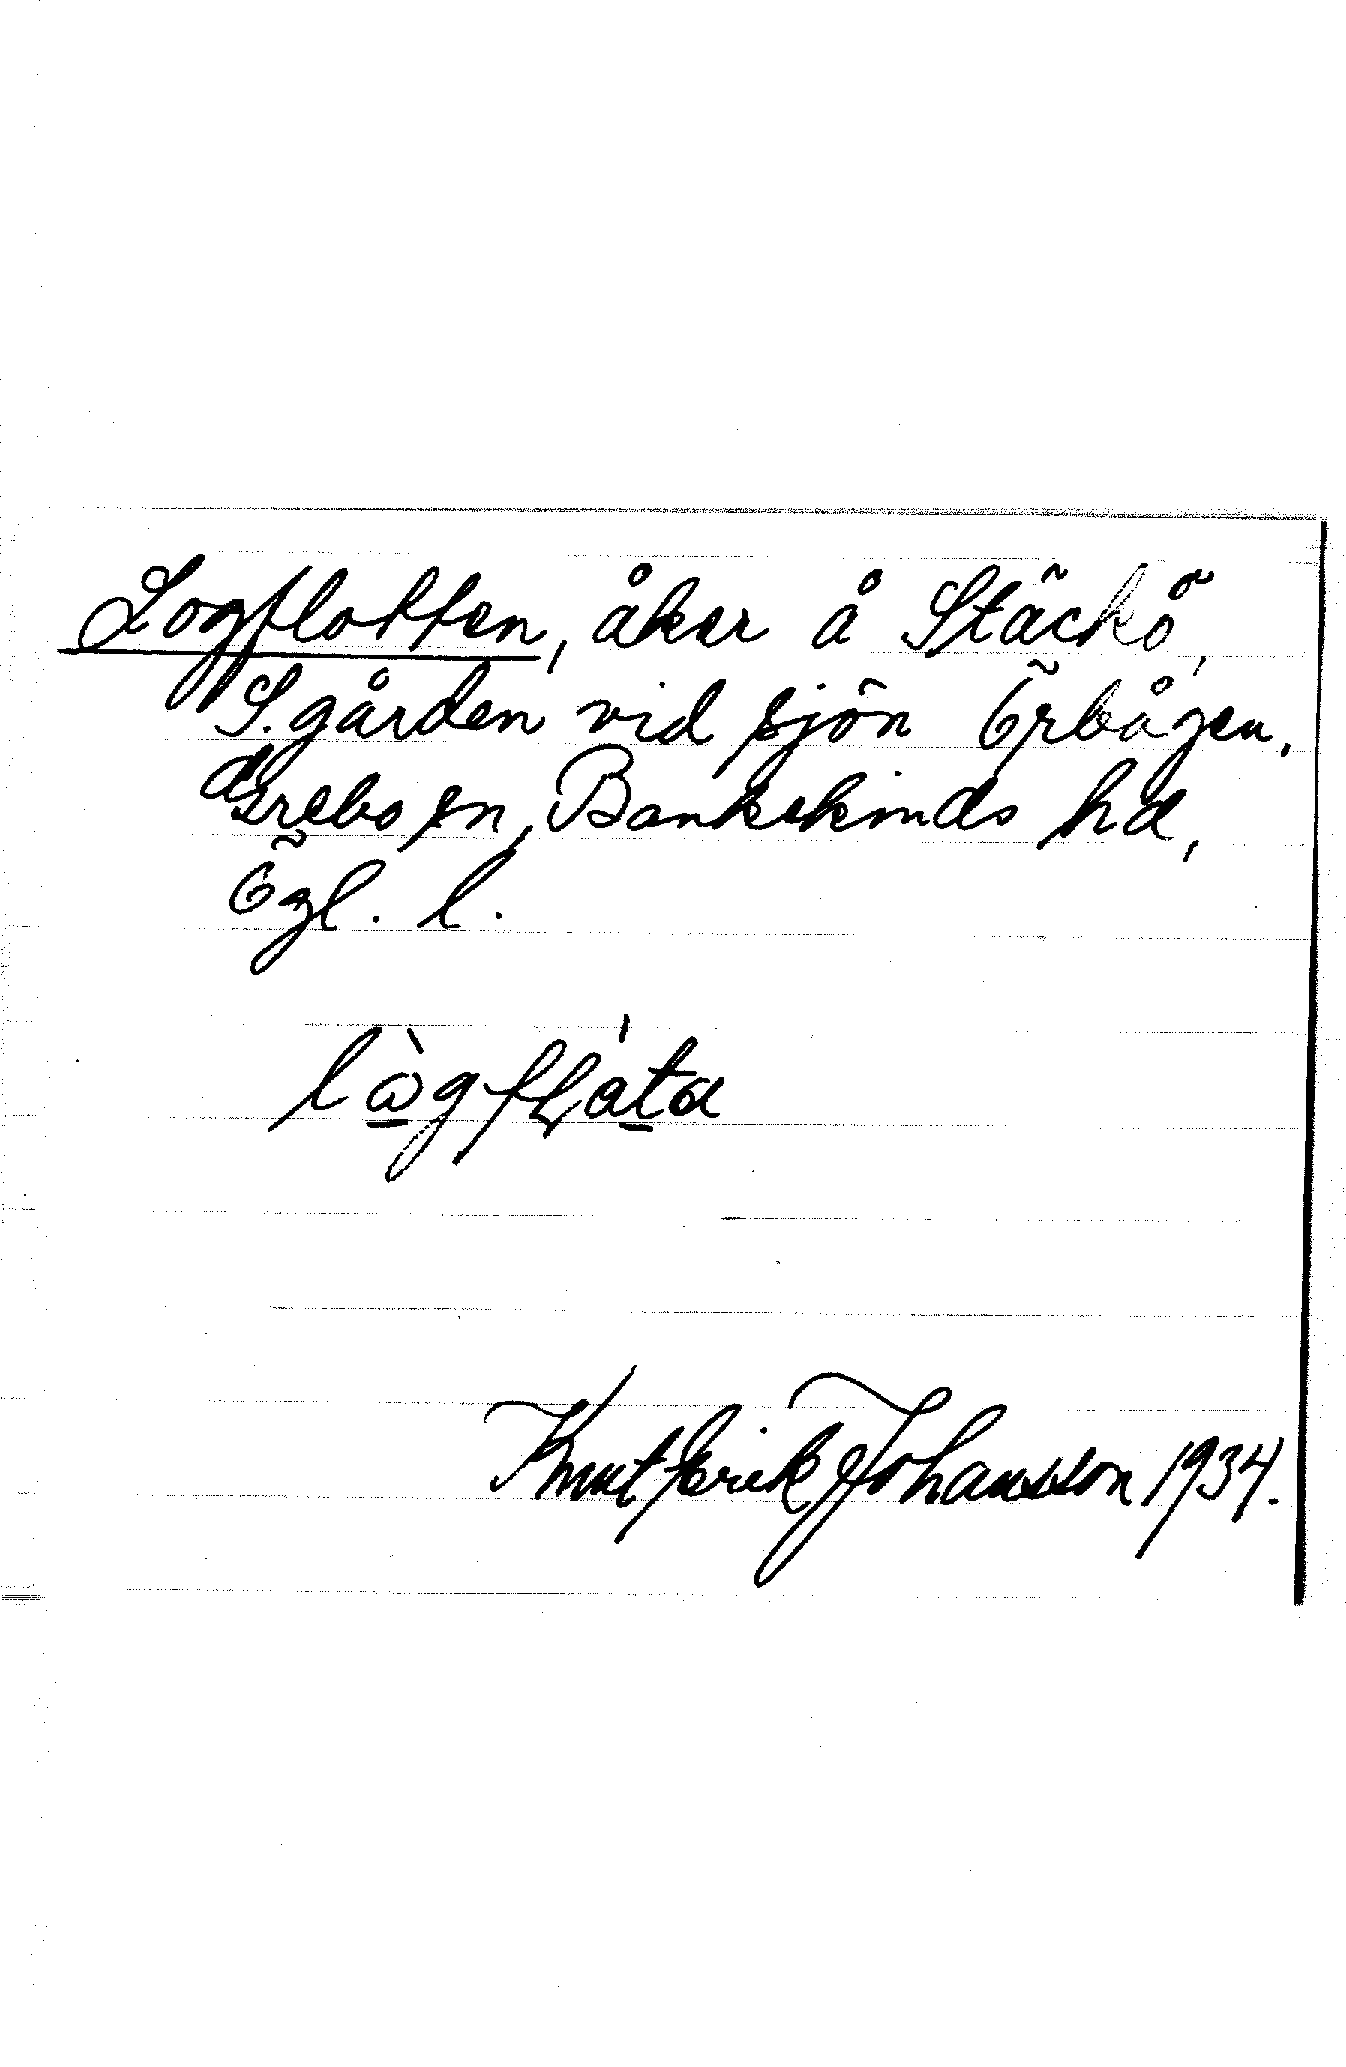 Logflotten, åker å Stäckö,
S. gården vid sjön Örbågen,
Grebo sn, Bankekinds hd,
Ögl. l.
lògflota
Knut Erik Johansson 1934.